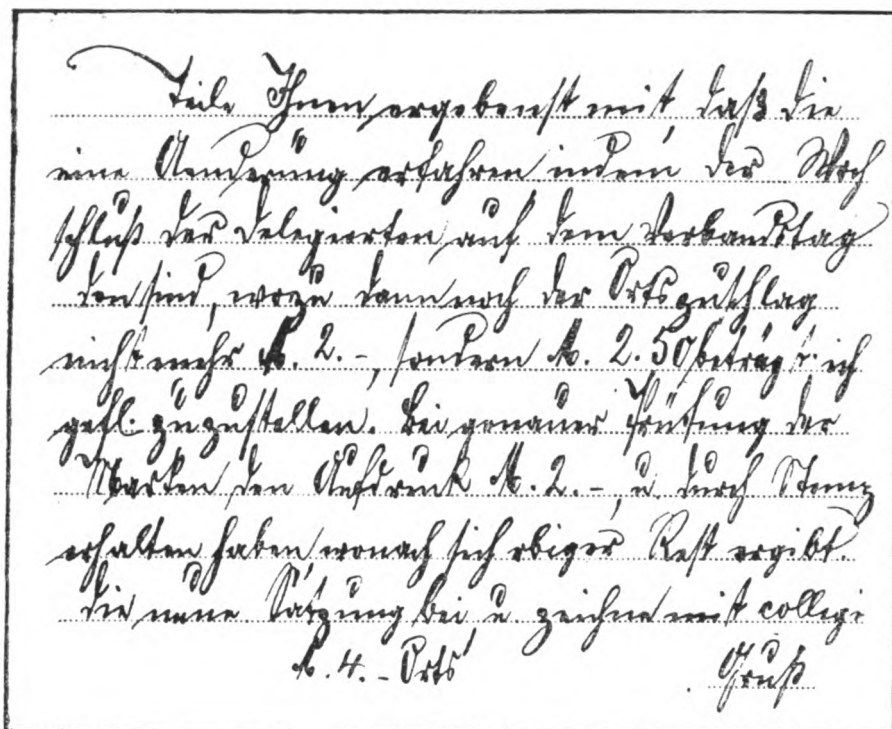 Teile Ihnen ergebenst mit, daß die
eine Aenderung erfahren indem der Woch
schluß der Delegierten auf dem Verbandstag
den sind, wozu dann noch der Ortszuschlag
nicht mehr M. 2.-, sondern M. 2.50 beträgt. ich
gefl. zuzustellen. Bei genauer Prüfung der
Marken den Aufdruck M. 2.-, u. durch Stemp
erhalten haben wonach sich obiger Rest ergibt.
die neue Satzung bei u. zeichne mit collegi
M. 4.- Orts
Gruß